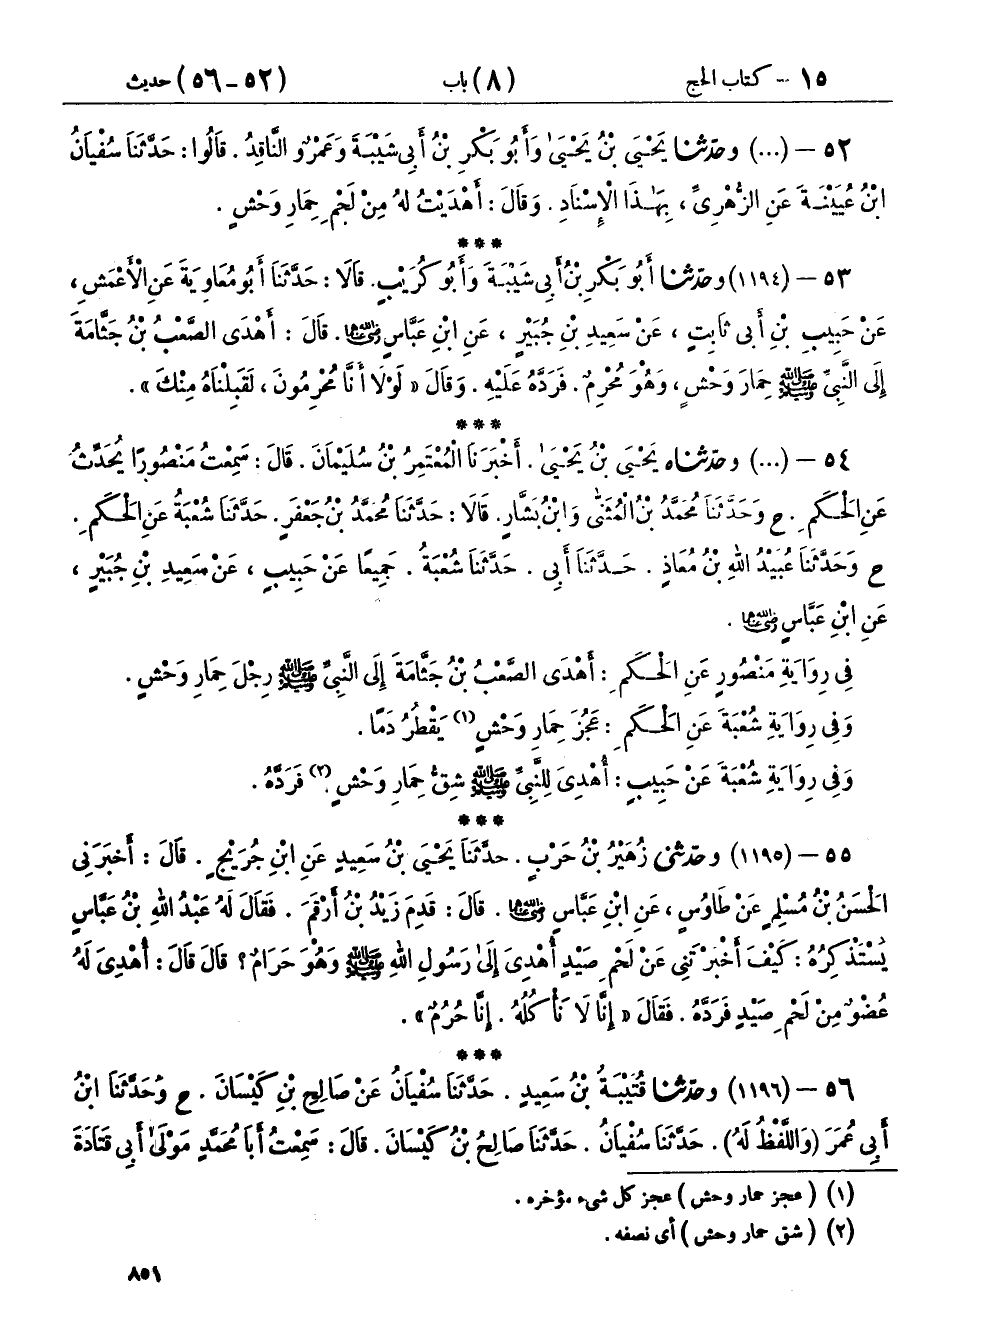 ١٥ — كتاب الحج (٨) باب (٥٢ــ٥٦) حديث
٥٢ — (...) وحدثنا يَحْيَى بْنُ يَحْيَىٰ وَأَبُو بَكْرِ بْنُ أَبِي شَيْبَةَ وَعَمْرٌو النَّاقِدُ . قَالُوا : حَدَّثَنَا سُفْيَانُ
ابْنُ عُيَيْنَةَ عَنِ الزُّهْرِيِّ ، بِهَٰذَا الْإِسْنَادِ . وَقَالَ : أَهْدَيْتُ لَهُ مِنْ لَحْمِ حِمَارِ وَحْشٍ .
***
٥٣ — (١١٩٤) وحدثنا أَبُو بَكْرِ بْنُ أَبِي شَيْبَةَ وَأَبُو كُرَيْبٍ. قَالَا : حَدَّثَنَا أَبُو مُعَاوِيَةَ عَنِ الْأَعْمَشِ ،
عَنْ حَبِيبِ بْنِ أَبِي ثَابِتٍ ، عَنْ سَعِيدِ بْنِ جُبَيْرٍ ، عَنِ ابْنِ عَبَّاسٍ رضي الله عنهما . قَالَ : أَهْدَى الصَّعْبُ بْنُ جَثَّامَةَ
إِلَى النَّبِيِّ ﷺ حِمَارَ وَحْشٍ ، وَهُوَ مُحْرِمٌ . فَرَدَّهُ عَلَيْهِ . وَقَالَ « لَوْلَا أَنَّا مُحْرِمُونَ ، لَقَبِلْنَاهُ مِنْكَ » .
***
٥٤ — (...) وحدثناه يَحْيَىٰ بْنُ يَحْيَىٰ . أَخْبَرَنَا الْمُعْتَمِرُ بْنُ سُلَيْمَانَ . قَالَ : سَمِعْتُ مَنْصُورًا يُحَدِّثُ
عَنِ الْحَكَمِ . ح وَحَدَّثَنَا مُحَمَّدُ بْنُ الْمُثَنَّىٰ وَابْنُ بَشَّارٍ. قَالَا : حَدَّثَنَا مُحَمَّدُ بْنُ جَعْفَرٍ. حَدَّثَنَا شُعْبَةُ عَنِ الْحَكَمِ .
ح وَحَدَّثَنَا عُبَيْدُ اللهِ بْنُ مُعَاذٍ . حَدَّثَنَا أَبِي . حَدَّثَنَا شُعْبَةُ . جَمِيعًا عَنْ حَبِيبٍ ، عَنْ سَعِيدِ بْنِ جُبَيْرٍ ،
عَنِ ابْنِ عَبَّاسٍ رضي الله عنهما .
فِي رِوَايَةِ مَنْصُورٍ عَنِ الْحَكَمِ : أَهْدَى الصَّعْبُ بْنُ جَثَّامَةَ إِلَى النَّبِيِّ ﷺ رِجْلَ حِمَارِ وَحْشٍ .
وَفِي رِوَايَةِ شُعْبَةَ عَنِ الْحَكَمِ : عَجُزَ حِمَارِ وَحْشٍ (١) يَقْطُرُ دَمًا .
وَفِي رِوَايَةِ شُعْبَةَ عَنْ حَبِيبٍ : أُهْدِيَ لِلنَّبِيِّ ﷺ شِقُّ حِمَارِ وَحْشٍ (٢) فَرَدَّهُ .
***
٥٥ — (١١٩٥) وحدثني زُهَيْرُ بْنُ حَرْبٍ . حَدَّثَنَا يَحْيَىٰ بْنُ سَعِيدٍ عَنِ ابْنِ جُرَيْجٍ . قَالَ : أَخْبَرَنِي
الْحَسَنُ بْنُ مُسْلِمٍ عَنْ طَاوُسٍ ، عَنِ ابْنِ عَبَّاسٍ رضي الله عنهما . قَالَ : قَدِمَ زَيْدُ بْنُ أَرْقَمَ . فَقَالَ لَهُ عَبْدُ اللهِ بْنُ عَبَّاسٍ
يَسْتَذْكِرُهُ : كَيْفَ أَخْبَرْتَنِي عَنْ لَحْمِ صَيْدٍ أُهْدِيَ إِلَىٰ رَسُولِ اللهِ ﷺ وَهُوَ حَرَامٌ ؟ قَالَ قَالَ : أُهْدِيَ لَهُ
عُضْوٌ مِنْ لَحْمِ صَيْدٍ فَرَدَّهُ . فَقَالَ « إِنَّا لَا نَأْكُلُهُ . إِنَّا حُرُمٌ » .
***
٥٦ — (١١٩٦) وحدثنا قُتَيْبَةُ بْنُ سَعِيدٍ . حَدَّثَنَا سُفْيَانُ عَنْ صَالِحِ بْنِ كَيْسَانَ . ح وَحَدَّثَنَا ابْنُ
أَبِي عُمَرَ (وَاللَّفْظُ لَهُ) . حَدَّثَنَا سُفْيَانُ . حَدَّثَنَا صَالِحُ بْنُ كَيْسَانَ . قَالَ : سَمِعْتُ أَبَا مُحَمَّدٍ مَوْلَىٰ أَبِي قَتَادَةَ
(١) ( عجز حمار وحش ) عجز كل شيء مؤخره .
(٢) ( شق حمار وحش ) أي نصفه .
٨٥١